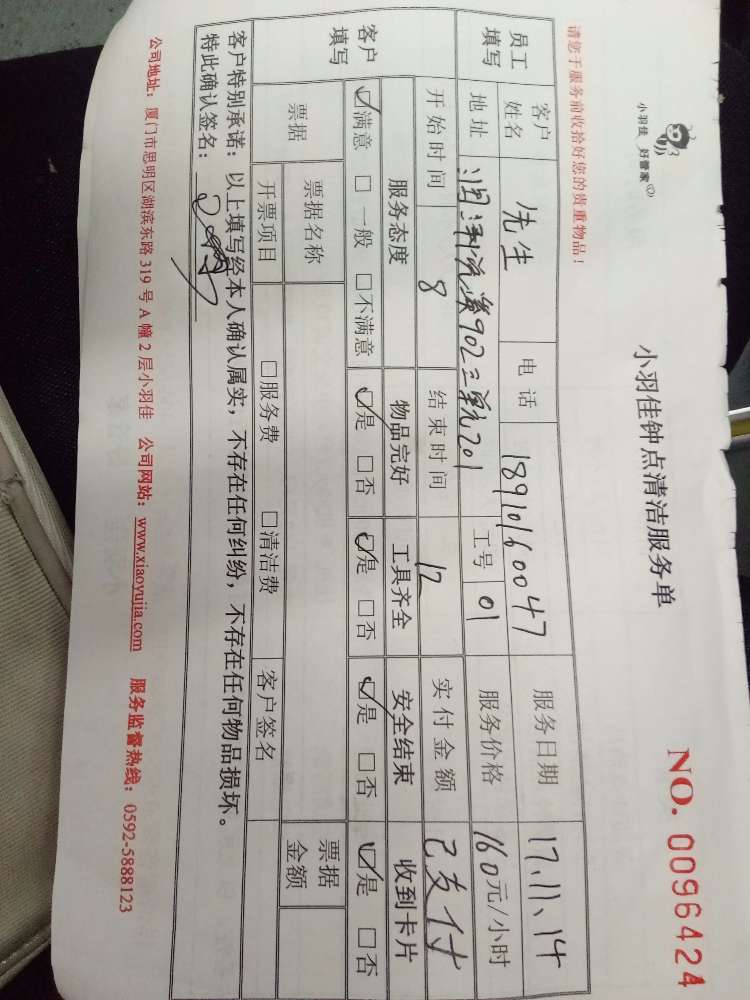 小羽佳 好管家
小羽佳钟点清洁服务单
NO. 0096424
请您于服务前收拾好您的贵重物品！
员工填写 客户姓名 先生 电话 18910160047 服务日期 17.11.14
地址 902三单元201 工号 01 服务价格 160元/小时
开始时间 8 结束时间 12 实付金额 已支付
客户填写 服务态度 物品完好 工具齐全 安全结束 收到卡片
☑满意 □一般 □不满意 ☑是 □否 ☑是 □否 ☑是 □否 ☑是 □否
票据 票据名称 票据金额
开票项目 □服务费 □清洁费 客户签名
客户特别承诺：以上填写经本人确认属实，不存在任何纠纷，不存在任何物品损坏。
特此确认签名：
公司地址：厦门市思明区湖滨东路 319 号 A 幢 2 层小羽佳 公司网站：www.xiaoyujia.com 服务监督热线：0592-5888123